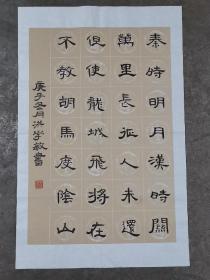 秦時明月漢時關
萬里長征人未還
但使龍城飛將在
不教胡馬度陰山
庚子冬月洪学敏書